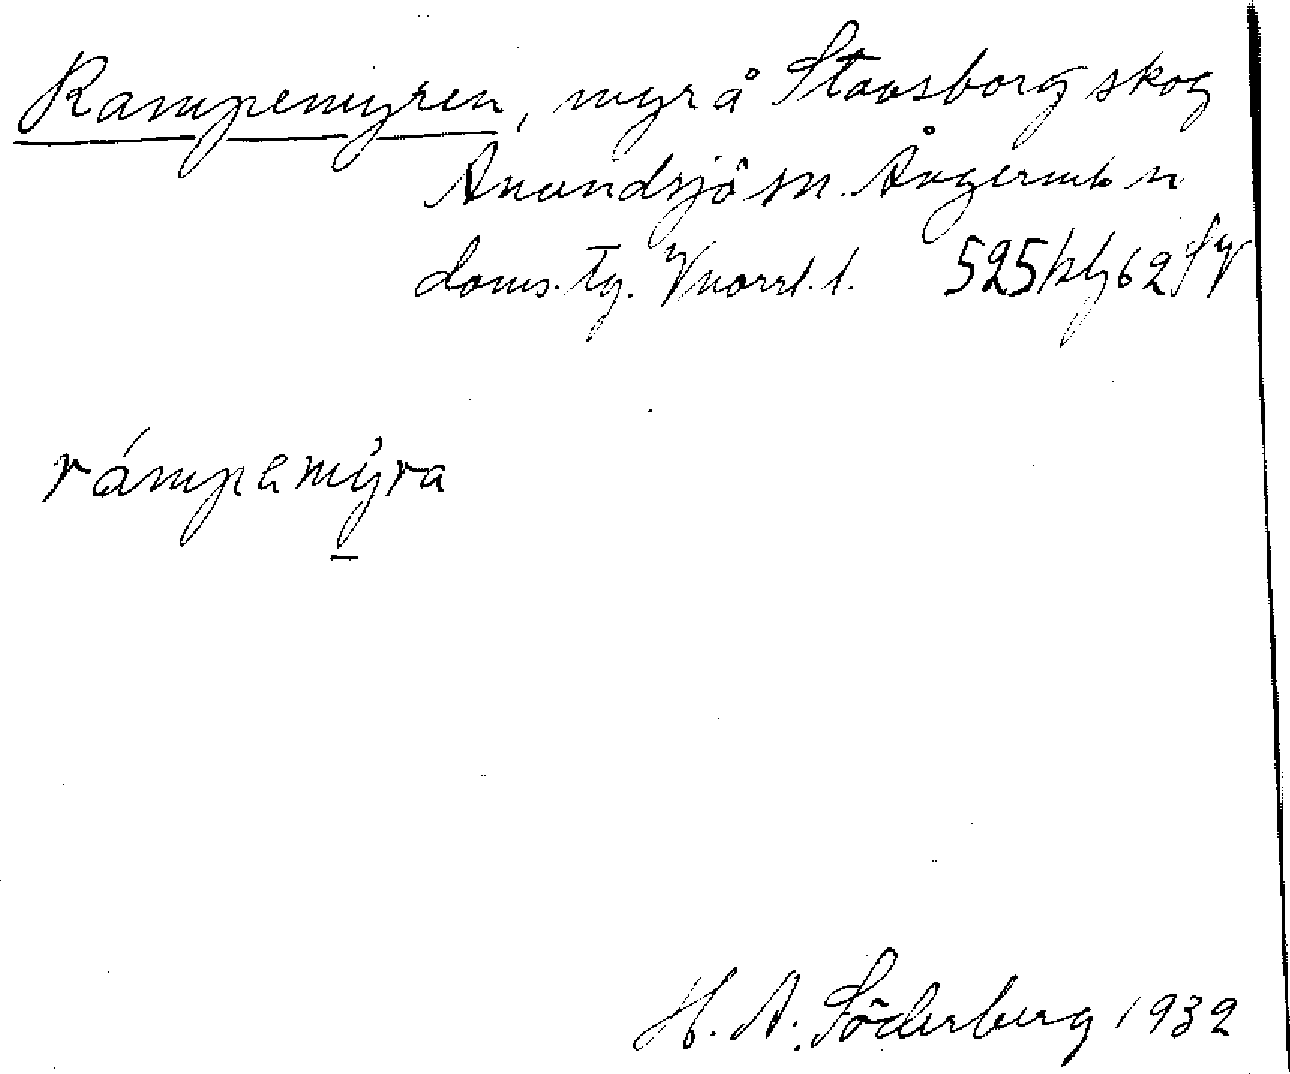 Rampemyren, myr å Stavsborg skog
Anundsjö sn. Ångermls n
doms. tg. Vnorrl. l. 525 62 SV
rámpemy̱ra
H. A. Söderberg 1932